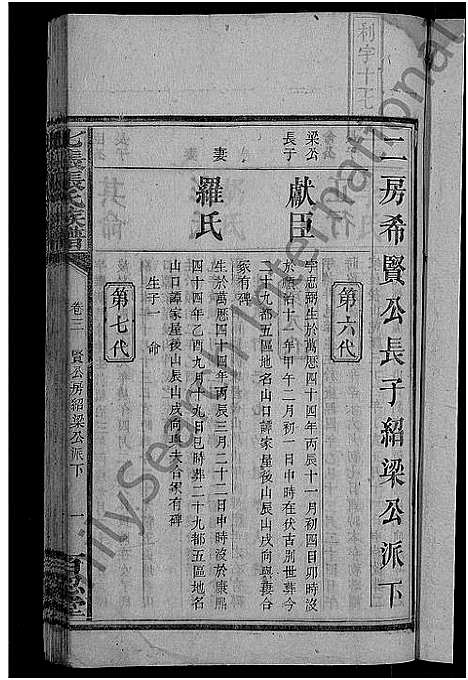 利字十七
二房希賢公長子紹梁公派下
第六代
梁公
長子
獻臣
字忠弼生於萬厯四十四年丙辰十一月初四日卯時沒
於順治十一年甲午二月初一日申時在伏古別世葬今
二十九都五區地名山口譚家屋後山辰山戌向與妻合
冢有碑
妻
羅氏
生於萬厯四十四年丙辰三月二十二日申時沒於康熙
四十四年乙酉九月十九日巳時葬二十九都五區地名
山口譚家屋後山辰山戌向與夫合冢有碑
生子一 命
第七代
張氏族譜
卷三
賢公房紹梁公派下
一
FamilySearch International